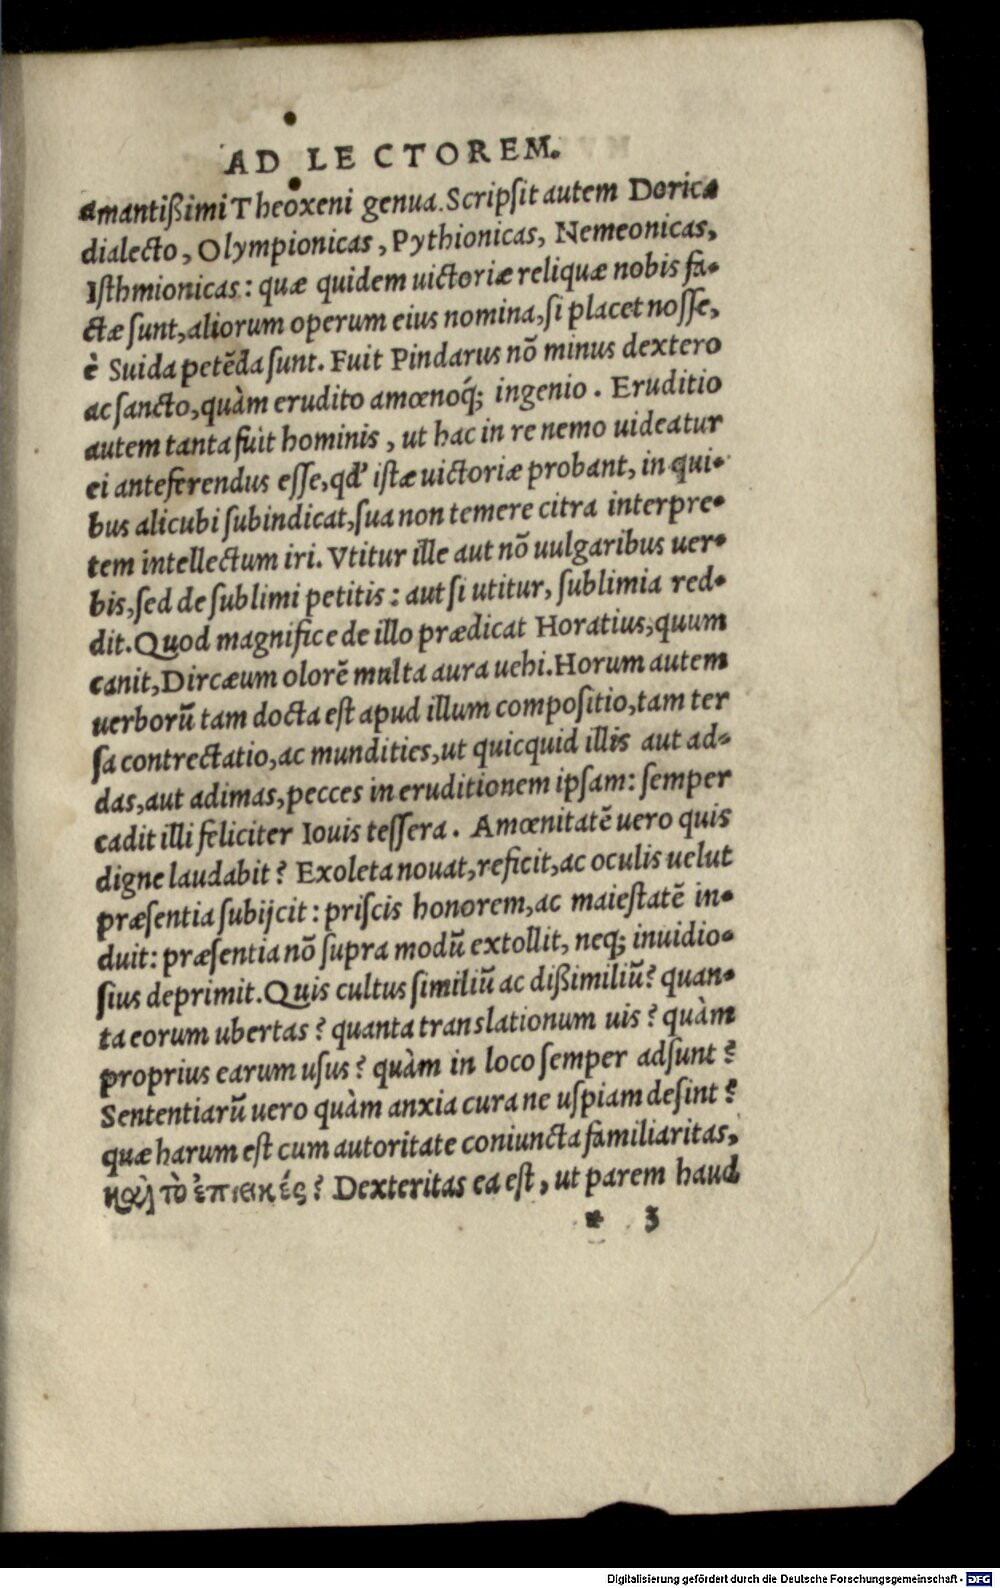 AD LECTOREM.
amantißimi Theoxeni genua. Scripſit autem Dorica
dialecto, Olympionicas, Pythionicas, Nemeonicas,
Iſthmionicas: quæ quidem uictoriæ reliquæ nobis fa-
ctæ ſunt, aliorum operum eius nomina, ſi placet noſſe,
è Suida petēda ſunt. Fuit Pindarus nō minus dextero
ac ſancto, quàm erudito amœnoq́; ingenio. Eruditio
autem tanta fuit hominis, ut hac in re nemo uideatur
ei anteferendus eſſe, qđ iſtæ uictoriæ probant, in qui-
bus alicubi ſubindicat, ſua non temere citra interpre-
tem intellectum iri. Vtitur ille aut nō uulgaribus uer-
bis, ſed de ſublimi petitis: aut ſi utitur, ſublimia red-
dit. Quod magnifice de illo prædicat Horatius, quum
canit, Dircæum olorē multa aura uehi. Horum autem
uerborū tam docta eſt apud illum compoſitio, tam ter
ſa contrectatio, ac mundities, ut quicquid illis aut ad-
das, aut adimas, pecces in eruditionem ipſam: ſemper
cadit illi feliciter Iouis teſſera. Amœnitatē uero quis
digne laudabit? Exoleta nouat, reficit, ac oculis uelut
præſentia ſubijcit: priſcis honorem, ac maieſtatē in-
duit: præſentia nō ſupra modū extollit, neq; inuidio-
ſius deprimit. Quis cultus ſimiliū ac dißimiliū? quan-
ta eorum ubertas? quanta translationum uis? quàm
proprius earum uſus? quàm in loco ſemper adſunt?
Sententiarū uero quàm anxia cura ne uſpiam deſint?
quæ harum eſt cum autoritate coniuncta familiaritas,
καὶ τὸ ἐπιεικές? Dexteritas ea eſt, ut parem haud
* 3
Digitalisierung gefördert durch die Deutsche Forschungsgemeinschaft - DFG